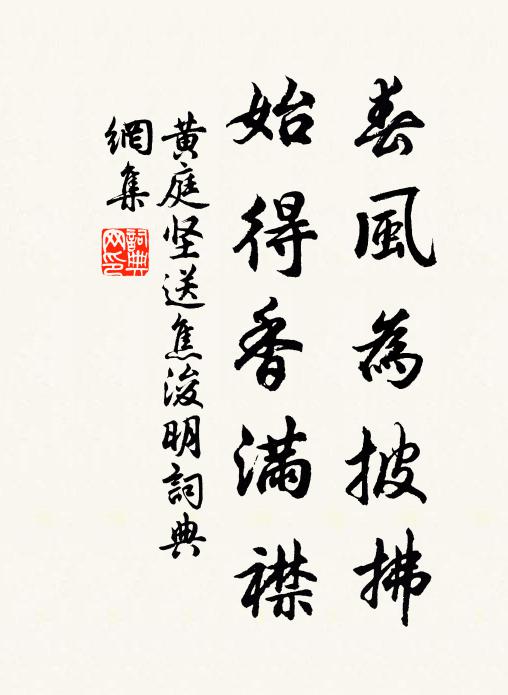 春風為披拂
始得香滿襟
黄庭坚送焦浚明詞典
網集
詞典
网印